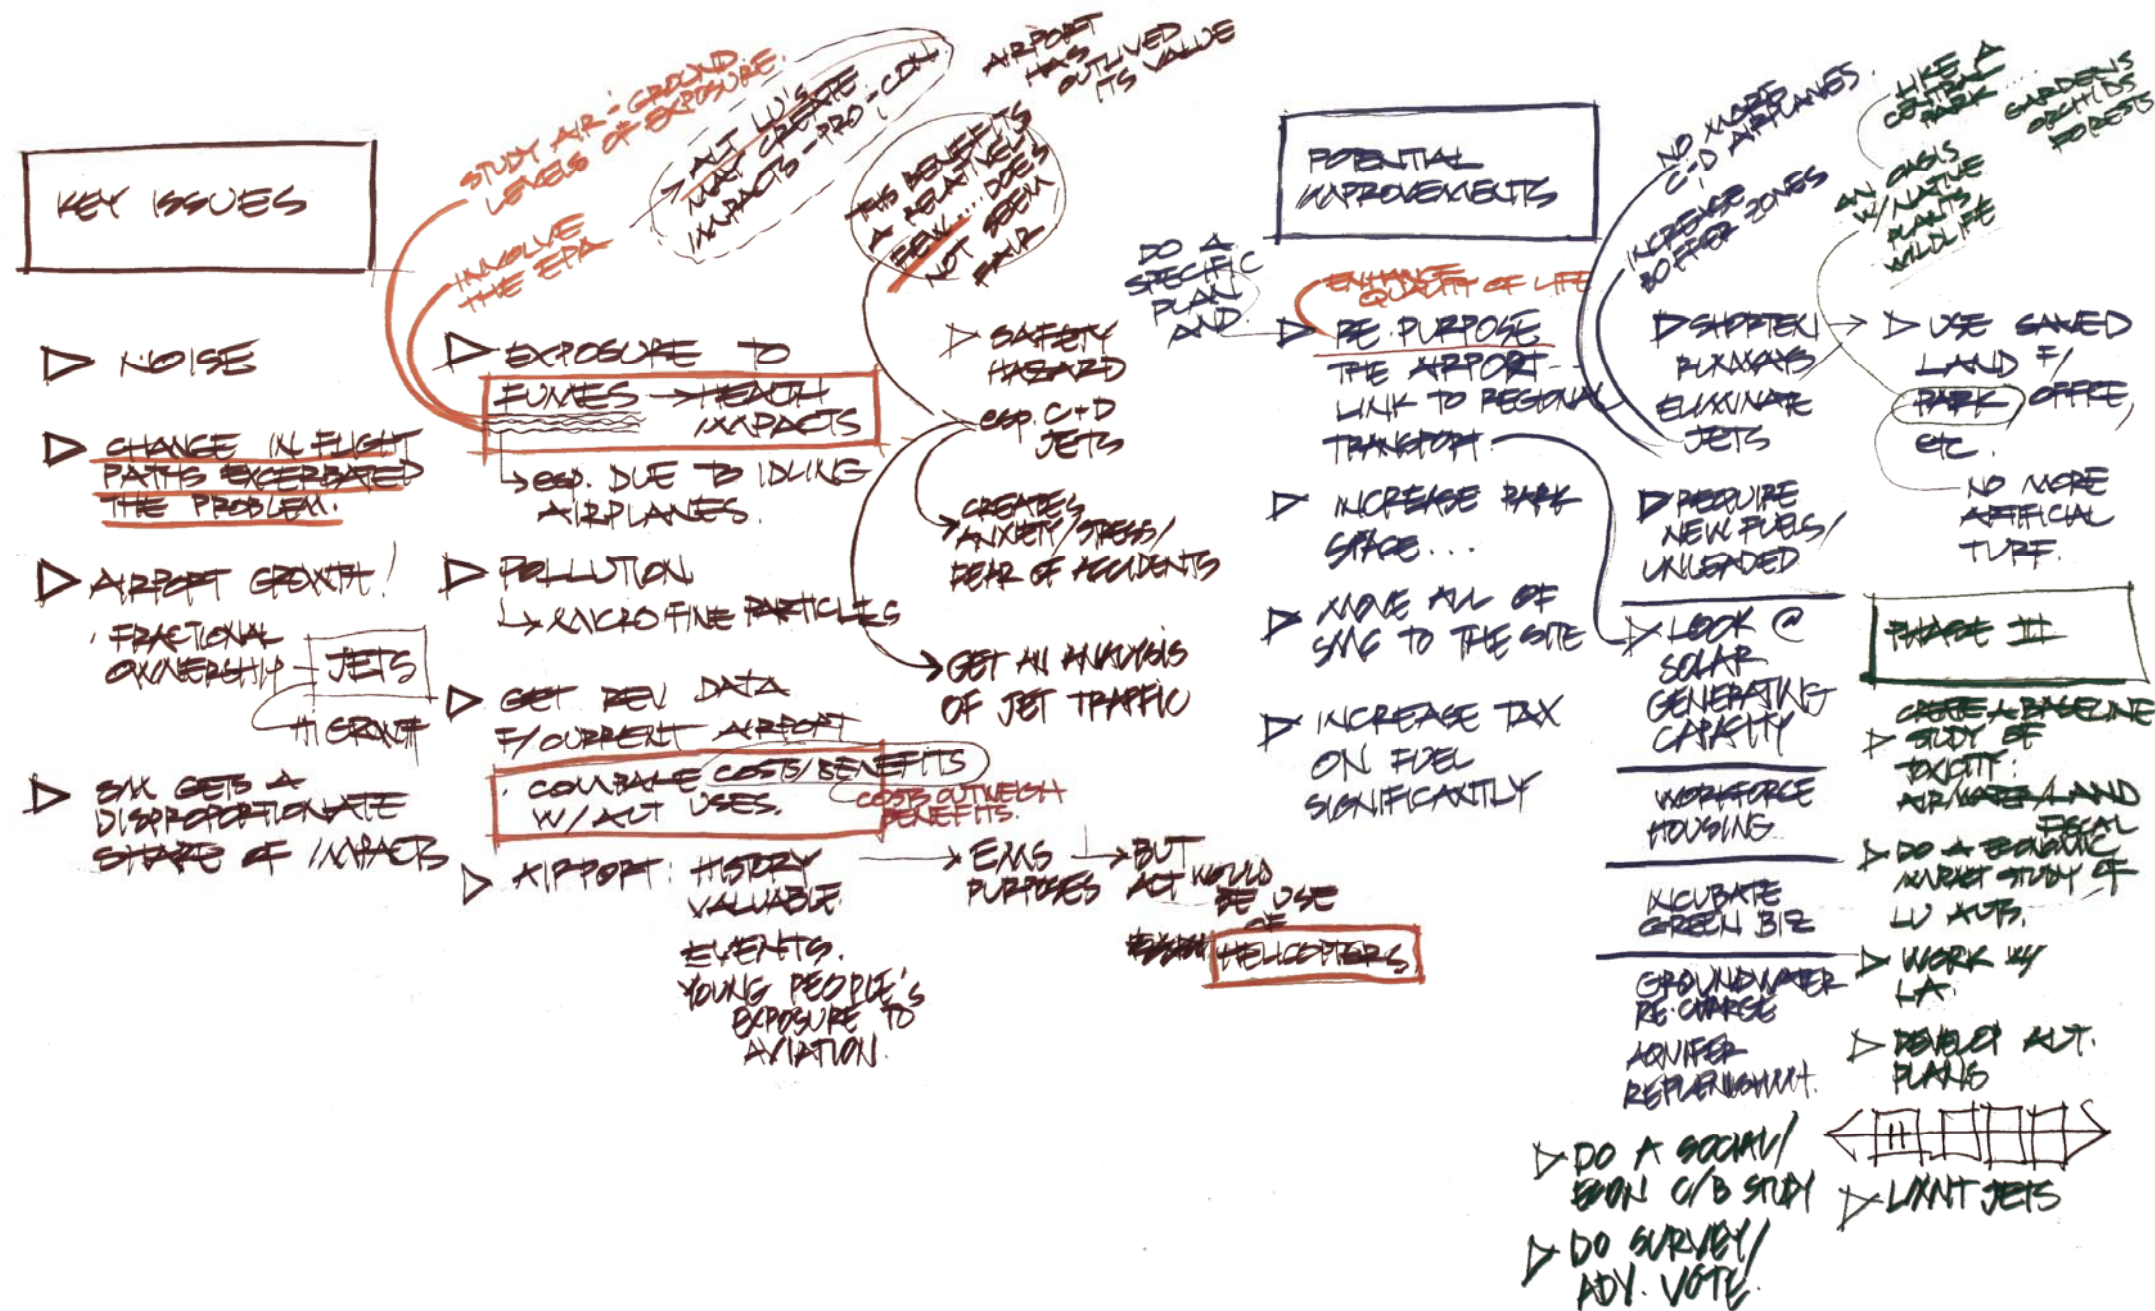 KEY ISSUES
▷ NOISE
▷ CHANGE IN FLIGHT
PATHS EXCERBATED
THE PROBLEM.
▷ AIRPORT GROWTH!
· FRACTIONAL
OWNERSHIP – JETS
HI GROWTH
▷ SM GETS A
DISPROPORTIONATE
SHARE OF IMPACTS
STUDY AIR & GROUND
LEVELS OF EXPOSURE.
INVOLVE
THE EPA
→ ALT LU'S
MAY CREATE
IMPACTS - PRO & CON
▷ EXPOSURE TO
FUMES → HEALTH
IMPACTS
↳ esp. DUE TO IDLING
AIRPLANES.
▷ POLLUTION
↳ MICRO FINE PARTICLES
▷ GET REV DATA
F/CURRENT AIRPORT
· COMPARE COSTS/BENEFITS
W/ALT USES.
COSTS OUTWEIGH
BENEFITS.
▷ AIRPORT: HISTORY
VALUABLE.
EVENTS.
YOUNG PEOPLE'S
EXPOSURE TO
AVIATION.
→ EMS
PURPOSES
→ BUT
ALT WOULD
BE USE
OF
HELICOPTERS
AIRPORT
HAS
OUTLIVED
ITS VALUE
THIS BENEFITS
A RELATIVELY
FEW.... DOES
NOT SEEM
FAIR
▷ SAFETY
HAZARD
esp. C+D
JETS
CREATES
→ ANXIETY/STRESS/
FEAR OF ACCIDENTS
→ GET AN ANALYSIS
OF JET TRAFFIC
POTENTIAL
IMPROVEMENTS
DO A
SPECIFIC
PLAN
AND.
ENHANCE
QUALITY OF LIFE
▷ RE-PURPOSE
THE AIRPORT -
LINK TO REGIONAL
TRANSPORT.
▷ INCREASE PARK
SPACE...
▷ MOVE ALL OF
SMC TO THE SITE
▷ INCREASE TAX
ON FUEL
SIGNIFICANTLY
NO MORE
C & D AIRPLANES.
INCREASE
BUFFER ZONES
▷ SHORTEN
RUNWAYS
ELIMINATE
JETS
▷ REQUIRE
NEW FUELS/
UNLEADED
▷ LOOK @
SOLAR
GENERATING
CAPACITY
WORKFORCE
HOUSING
INCUBATE
GREEN BIZ
GROUNDWATER
RE-CHARGE
AQUIFER
REPLENISHMT.
▷ DO A SOCIAL/
ECON C/B STUDY
▷ DO SURVEY/
ADV. VOTE.
LIKE A
CENTRAL
PARK
GARDENS
ORCHIDS
FORESTS
AN OASIS
W/NATIVE
PLANTS
WILDLIFE
→ ▷ USE SAVED
LAND F/
PARK, OFFICE,
etc.
NO MORE
ARTIFICIAL
TURF.
PHASE III
CREATE A BASELINE
▷ STUDY OF
TOXICITY:
AIR/WATER/LAND
FISCAL
▷ DO A ECONOMIC
IMPACT STUDY OF
LU ALTS.
▷ WORK W/
LA.
▷ DEVELOP ALT.
PLANS
▷ LIMIT JETS